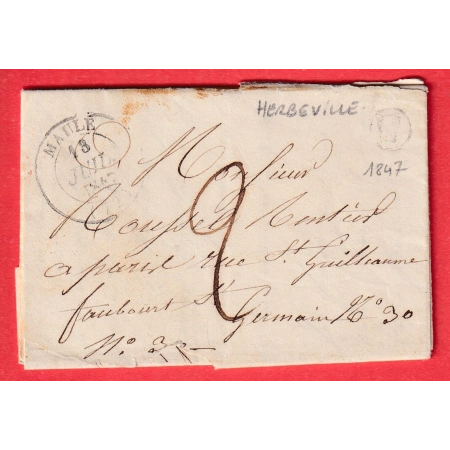 HERBEVILLE
MAULE
18
JUIL
1847
1847
Monsieur
Rousset Rentier
a paris rue St Guilhaume
faubourt St
Germain No 30
No. 30
2